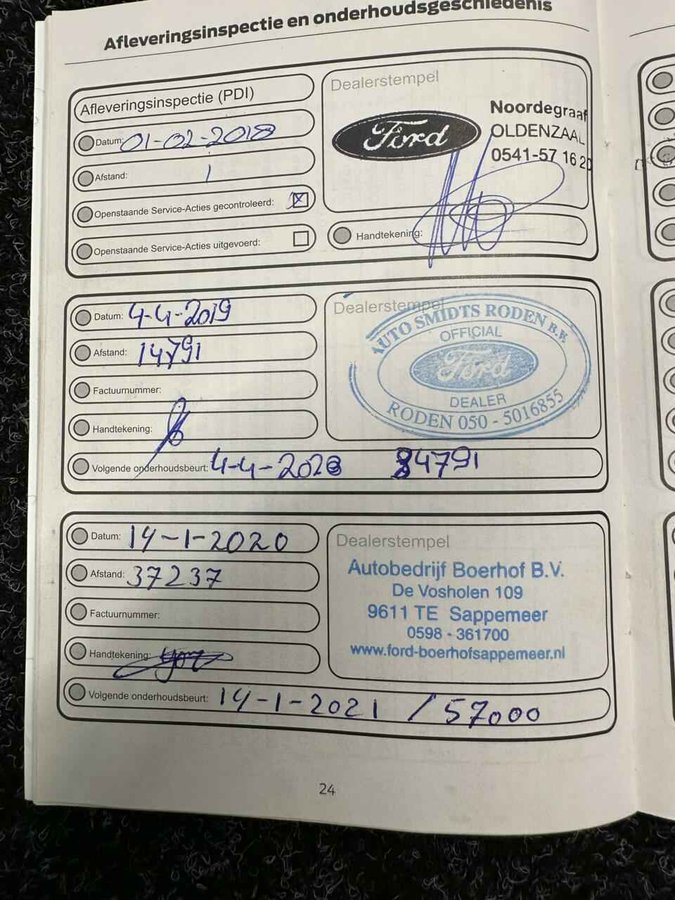 Afleveringsinspectie en onderhoudsgeschiedenis
Afleveringsinspectie (PDI)
Datum: 01-02-2018
Afstand: 1
Openstaande Service-Acties gecontroleerd:
Openstaande Service-Acties uitgevoerd:
Dealerstempel
Ford
Noordegraaf
OLDENZAAL
0541-57 16 20
Handtekening:
Datum: 4-4-2019
Afstand: 14791
Factuurnummer:
Handtekening:
Volgende onderhoudsbeurt: 4-4-2020 34791
Dealerstempel
AUTO SMIDTS RODEN B.V.
OFFICIAL
Ford
DEALER
RODEN 050 - 5016855
Datum: 14-1-2020
Afstand: 37237
Factuurnummer:
Handtekening:
Volgende onderhoudsbeurt: 14-1-2021 / 57000
Dealerstempel
Autobedrijf Boerhof B.V.
De Vosholen 109
9611 TE Sappemeer
0598 - 361700
www.ford-boerhofsappemeer.nl
24